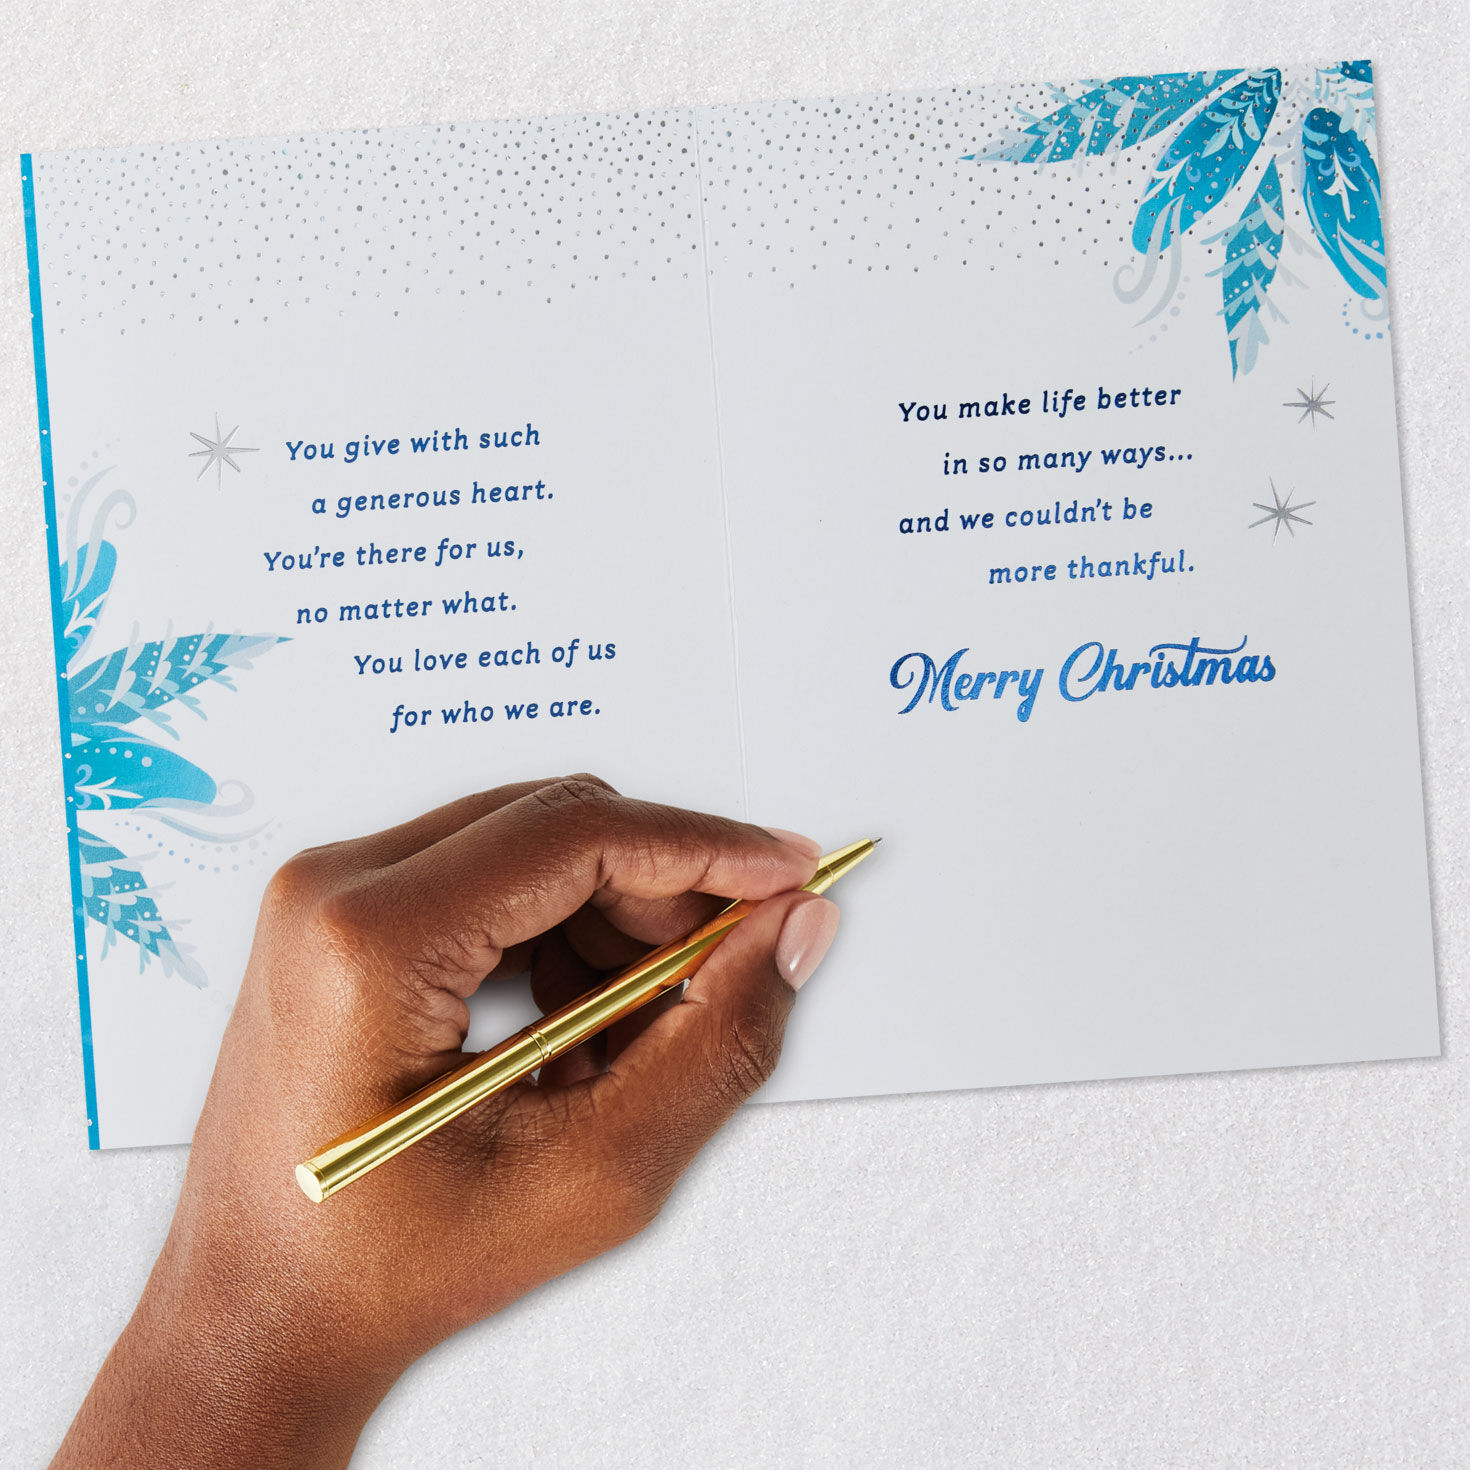 You give with such
a generous heart.
You're there for us,
no matter what.
You love each of us
for who we are.
You make life better
in so many ways...
and we couldn't be
more thankful.
Merry Christmas